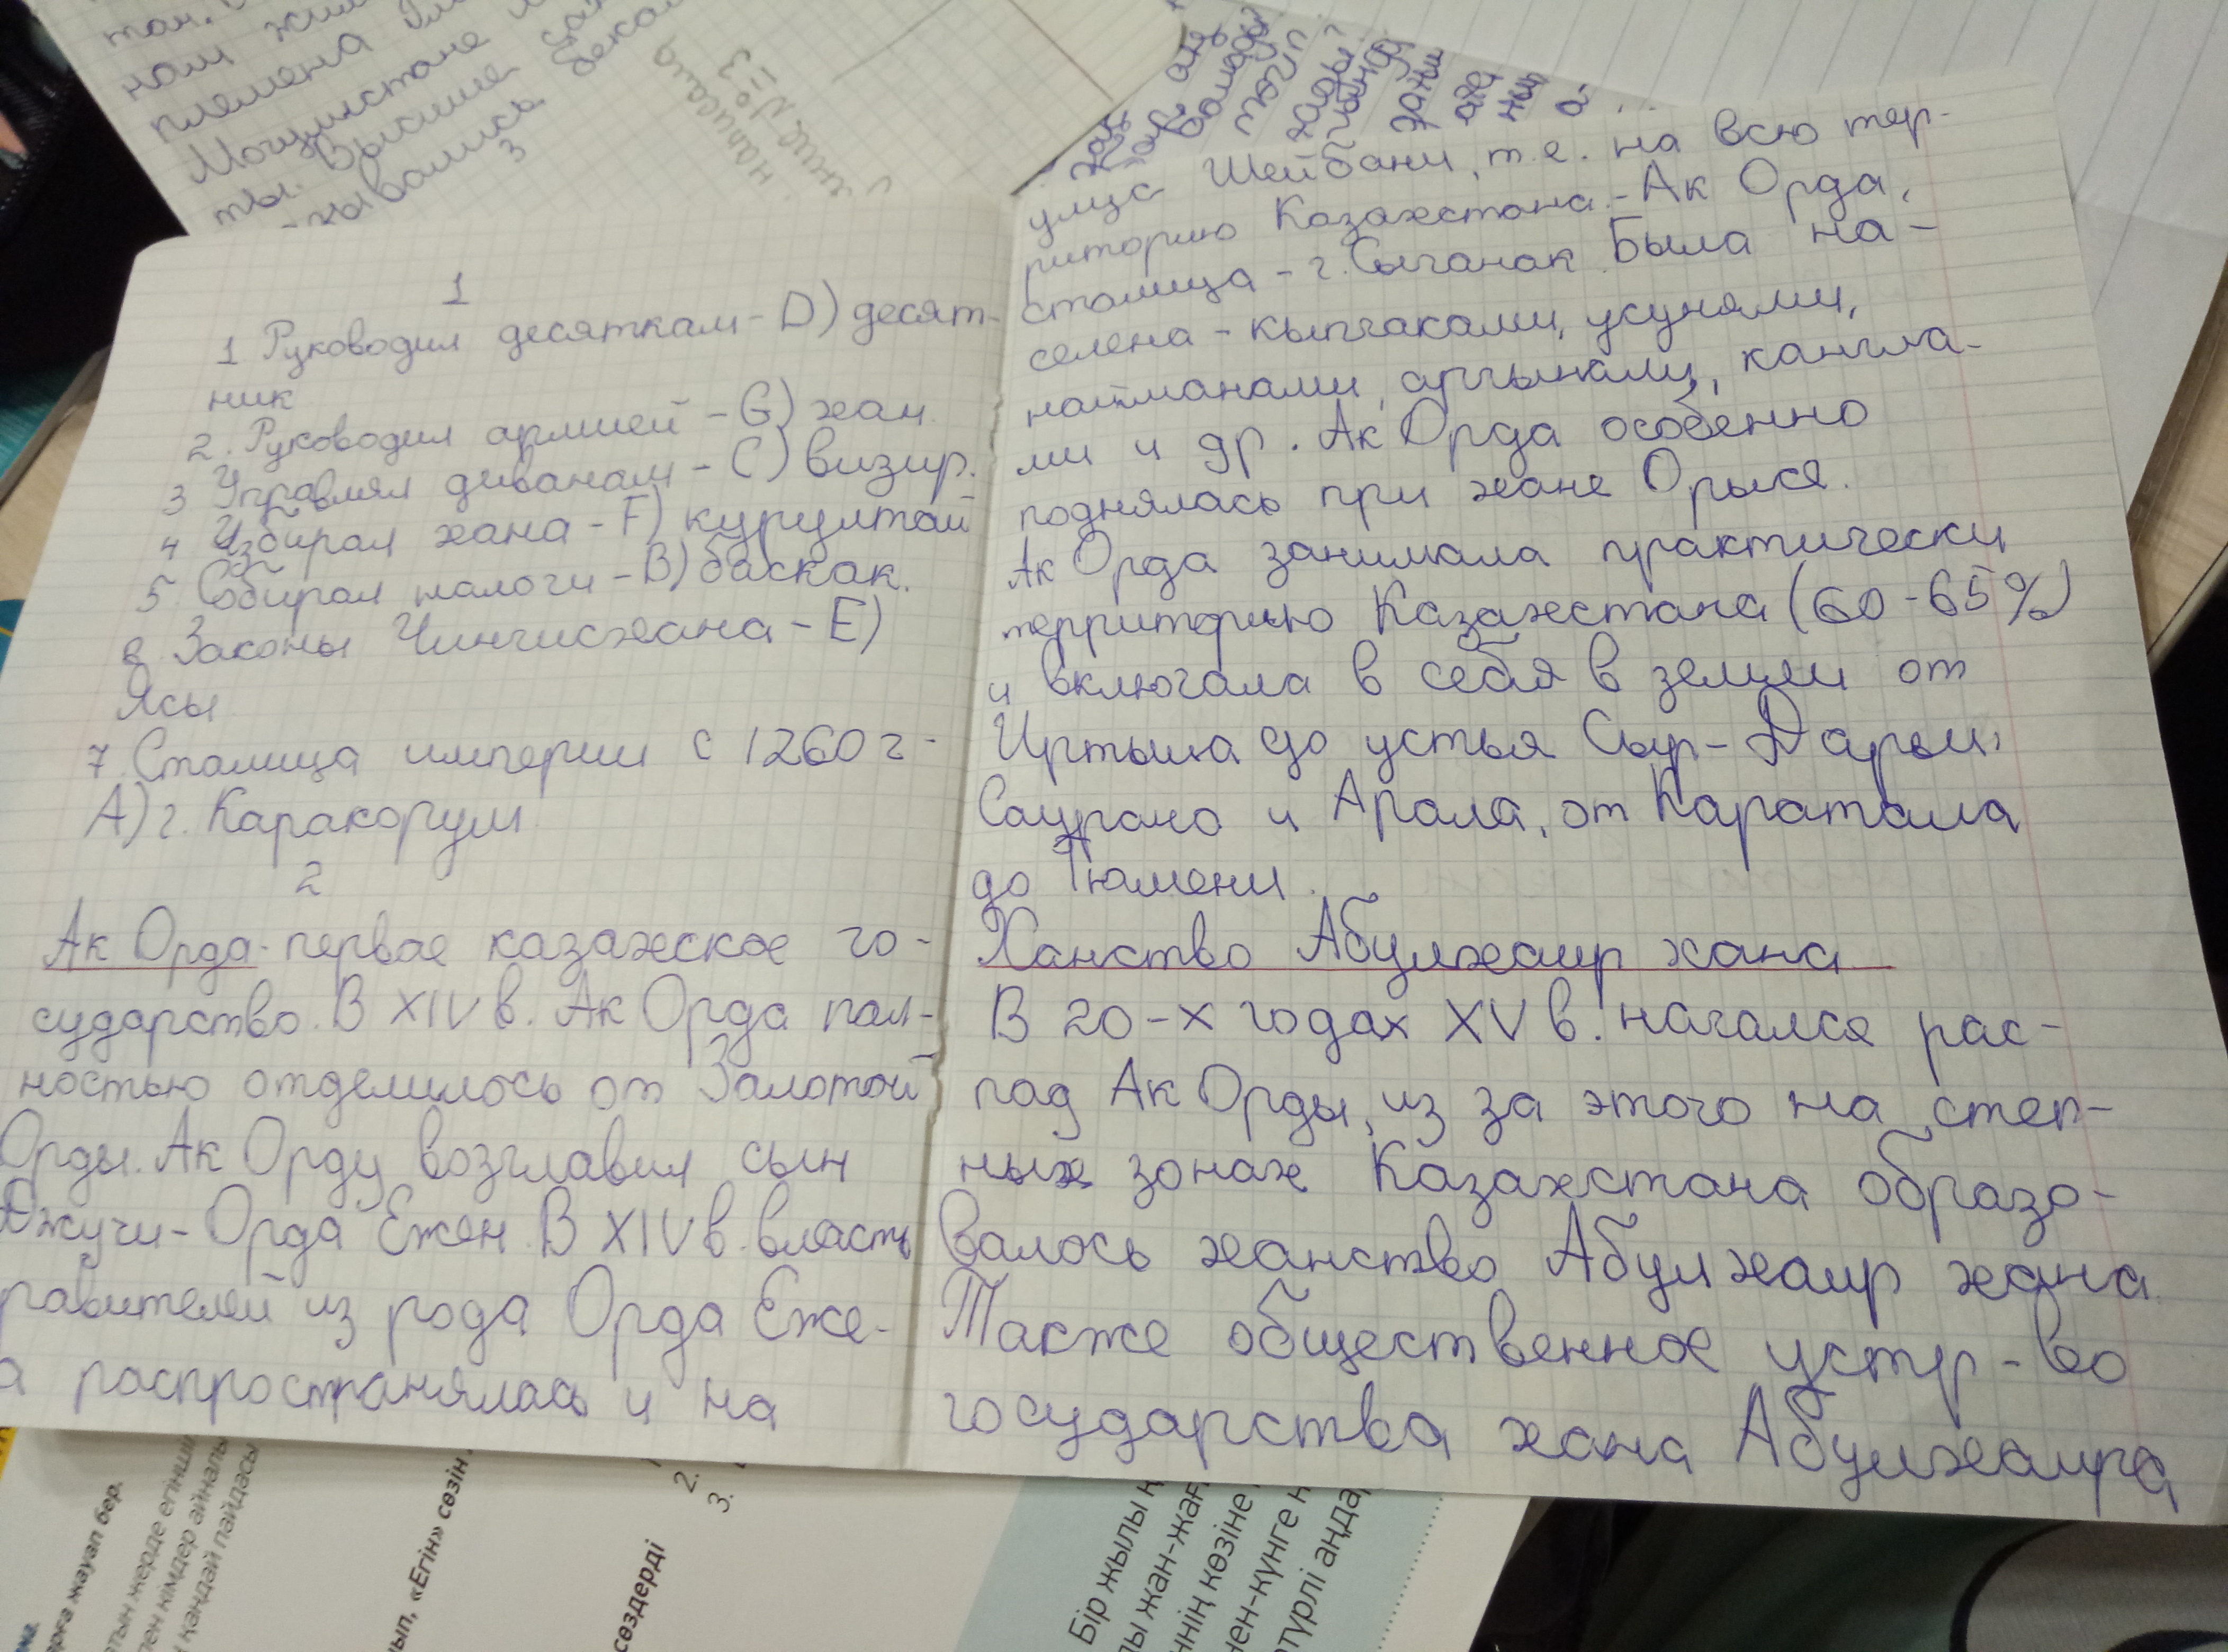 тан.
ном
племена
Могулистане
ты. Высшие
зывались
3
написана
№3
1
1 Руководил десяткам - D) десят-
ник
2. Руководил армией - G) хан.
3 Управлял диванам - C) визир.
4 Избирал хана - F) курултай
5. Собирал налоги - B) баскак.
6 Законы Чингисхана - E)
Ясы
7. Столица империи с 1260 г -
A) г. Каракорум
2
Ак Орда - первое казахское го-
сударство. В XIV в. Ак Орда пол-
ностью отделилось от Залотой
Орды. Ак Орду возглавил сын
Джучи - Орда Ежен. В XIV в. власть
равителей из рода Орда Еже-
а распространялась и на
улус Шейбани, т.е. на всю тер-
риторию Казахстана. - Ак Орда,
столица - г. Сыганак. Была на-
селена - кыпчаками, усунями,
найманами, аргынами, кангла-
ми и др. Ак Орда особенно
поднялась при хане Орыся.
Ак Орда занимала практически
территорию Казахстана (60 - 65%)
и включала в себя в земли от
Иртыша до устья Сыр - Дарьи,
Саурана и Арала, от Каратала
до Тюмени.
Ханство Абулхаир хана
В 20 - х годах XV в. начался рас-
пад Ак Орды, из за этого на степ-
ных зонах Казахстана образо-
валось ханство Абулхаир хана.
Также общественное устр - во
государства хана Абулхаира
рға жауап бер.
тын жерде егінші
пен кімдер айналы
қандай пайдасы
ып, «Егін» сөзін
2.
3.
сөздерді
Бір жылы қ
лы жан-жағ
ннің көзіне
нен-күнге н
әртүрлі аңда